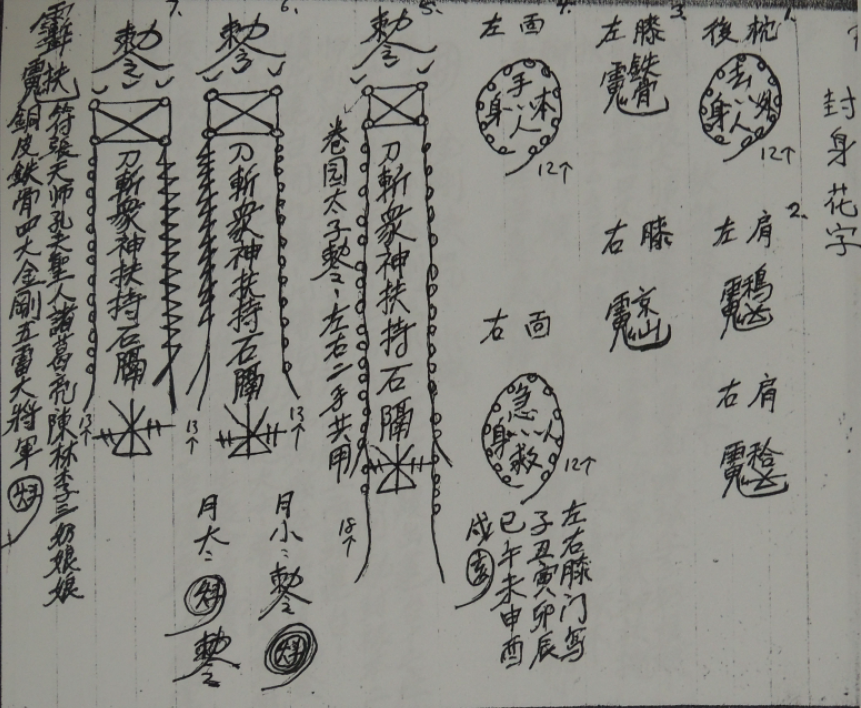 封身花字
1.
後枕
去外
身人
12个
2.
左肩
右肩
3.
左膝
鉄骨
右膝
京山
4.
左面
手本
身人
12个
右面
急人
身救
12个
左右膝门寫
子丑寅卯辰
巳午未申酉
戌
5.
勅令
刀斬衆神扶持石隔
卷园太子勅令左右二手共用
18个
6.
勅令
刀斬衆神扶持石隔
13个
月小
勅令
7.
勅令
刀斬衆神扶持石隔
13个
月大
勅令
扶符張天师孔夫聖人諸葛亮陳林李三奶娘娘
銅皮鉄骨四大金剛五雷大將軍